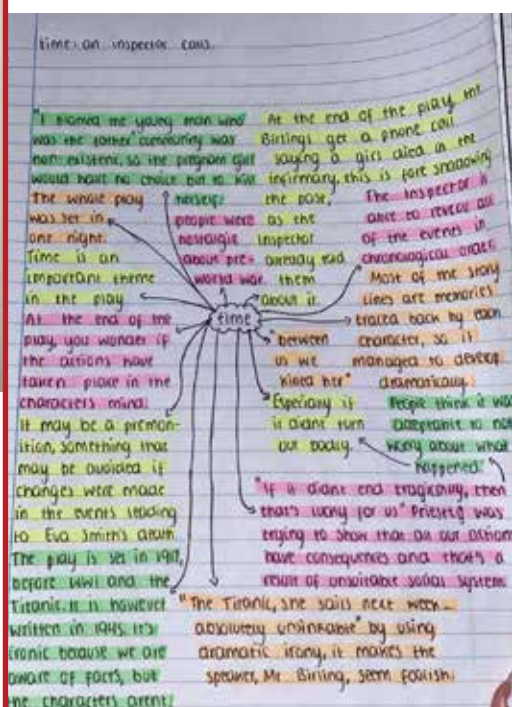 time: an inspector calls.
"I blamed the young man who
was the father" community was
non-existent, so the pregnant girl
would have no choice but to kill
herself.
The whole play
was set in
one night.
Time is an
important theme
in the play
At the end of the
play, you wonder if
the actions have
taken place in the
characters mind.
It may be a premon-
ition, something that
may be avoided if
changes were made
in the events leading
to Eva Smith's death
The play is set in 1912,
before WW1 and the
Titanic. It is however
written in 1945. It's
ironic because we are
aware of facts, but
the characters arent.
people were
nostalgic
about pre-
world war.
At the end of the play, the
Birlings get a phone call
saying a girls died in the
infirmary, this is fore shadowing
the past,
as the
inspector
already told
them
about it.
The Inspector is
able to reveal all
of the events in
chronological order.
Most of the story
lines are memories
traced back by each
character, so it
managed to develop
dramatically.
time
"between
us we
killed her"
Especially if
it didnt turn
out badly.
People think it was
acceptable to not
worry about what
happened.
"If it didnt end tragically, then
that's lucky for us" Priestley was
trying to show that all our actions
have consequences and that's a
result of unsuitable social system.
"The Titanic, she sails next week...
absolutely unsinkable" by using
dramatic irony, it makes the
speaker, Mr. Birling, seem foolish.